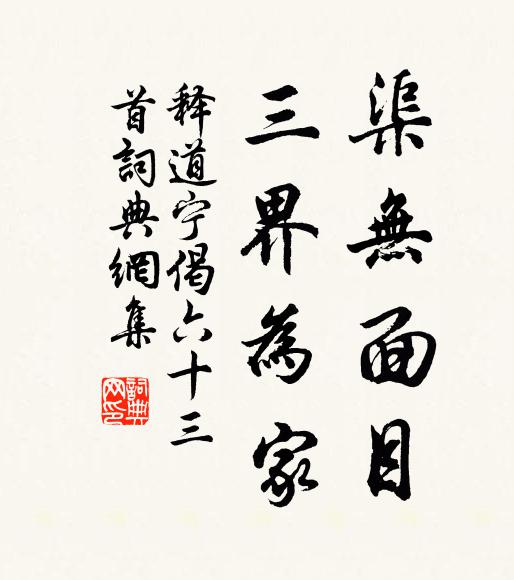 渠無面目
三界為家
释道宁偈六十三
首詞典網集
詞典
网印